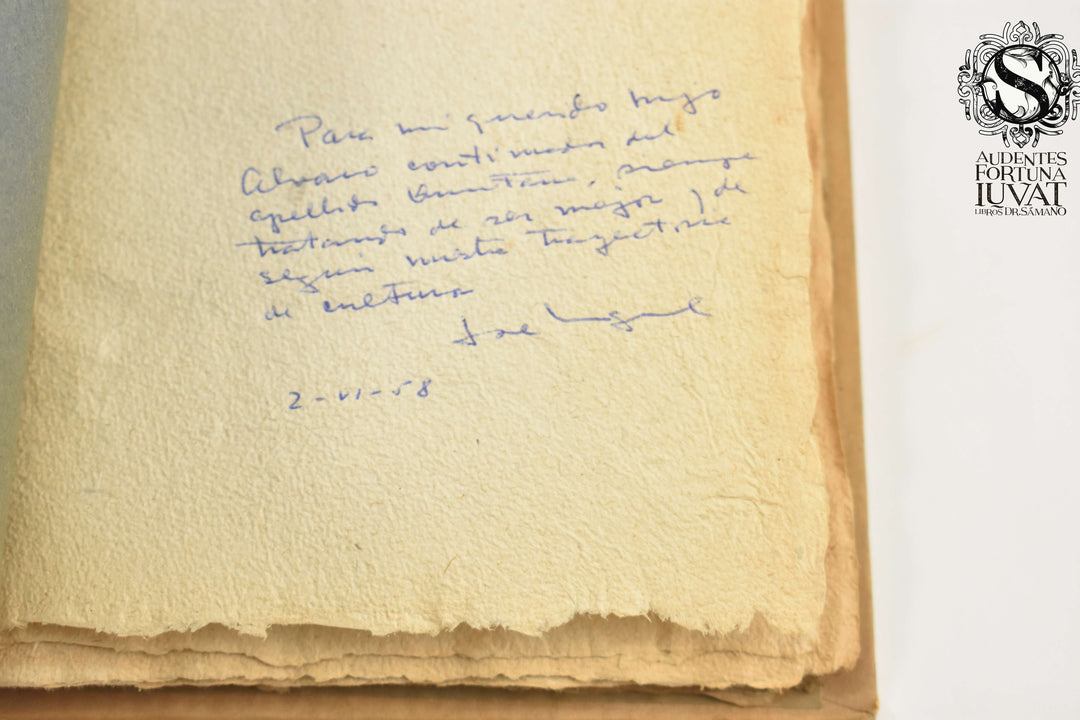 Para mi querido hijo
Alvaro continuador del
apellido Quintana, siempre
tratando de ser mejor y de
seguir nuestra trayectoria
de cultura
José Miguel
2-VI-58
S
AUDENTES
FORTUNA
IUVAT
LIBROS DR. SÁMANO